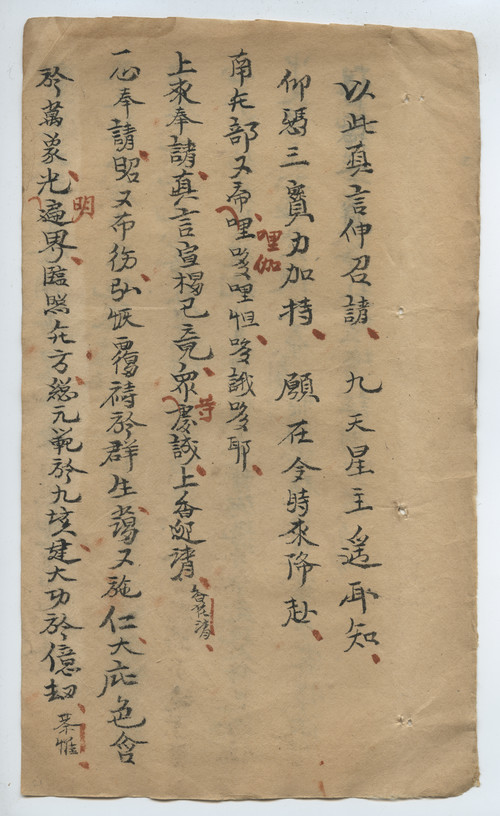 以此真言伸召請 九天星主遥聞知
仰憑三寳力加持 願在今時來降赴
南无部又帝哩哩伽哆哩怛哆誐哆耶
上來奉請真言宣揚已竟衆等虔誠上香迎請 香花請
一心奉請昭又布衍弘恢覆禱於群生蕩又施仁大庇色含
於萬彙光明遍界臨照无方總元範於九垓建大功於億劫 恭惟